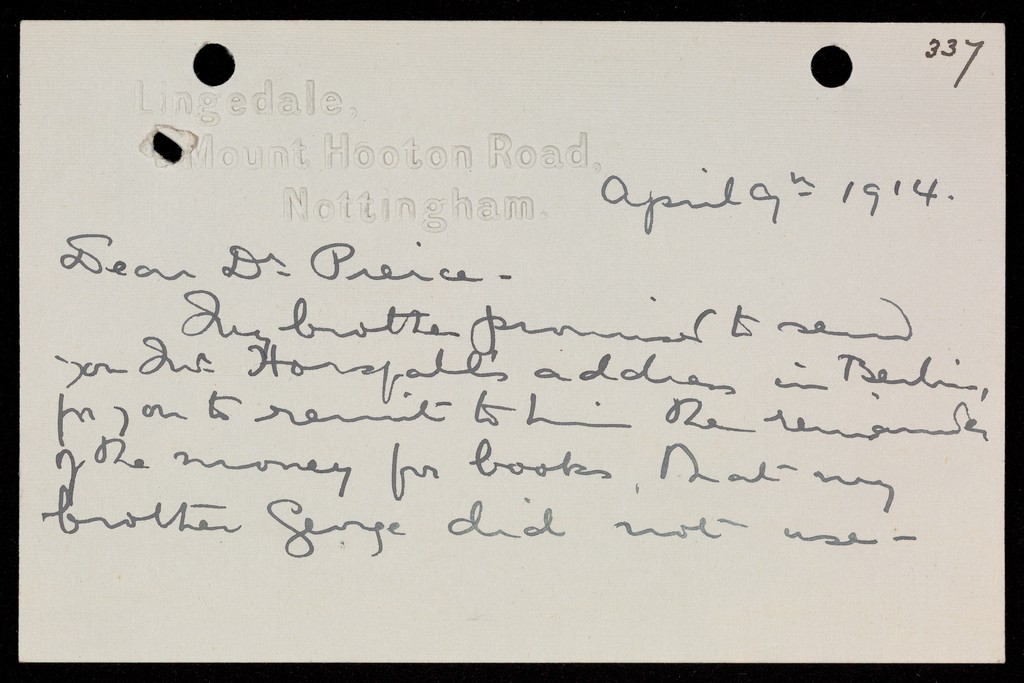 337
Lingedale,
Mount Hooton Road,
Nottingham.
April 9th 1914.
Dear Dr Pierce -
My brother promised to send
you Mr Horsfall's address in Berlin,
for you to remit to him the remainder
of the money for books, that my
brother George did not use -